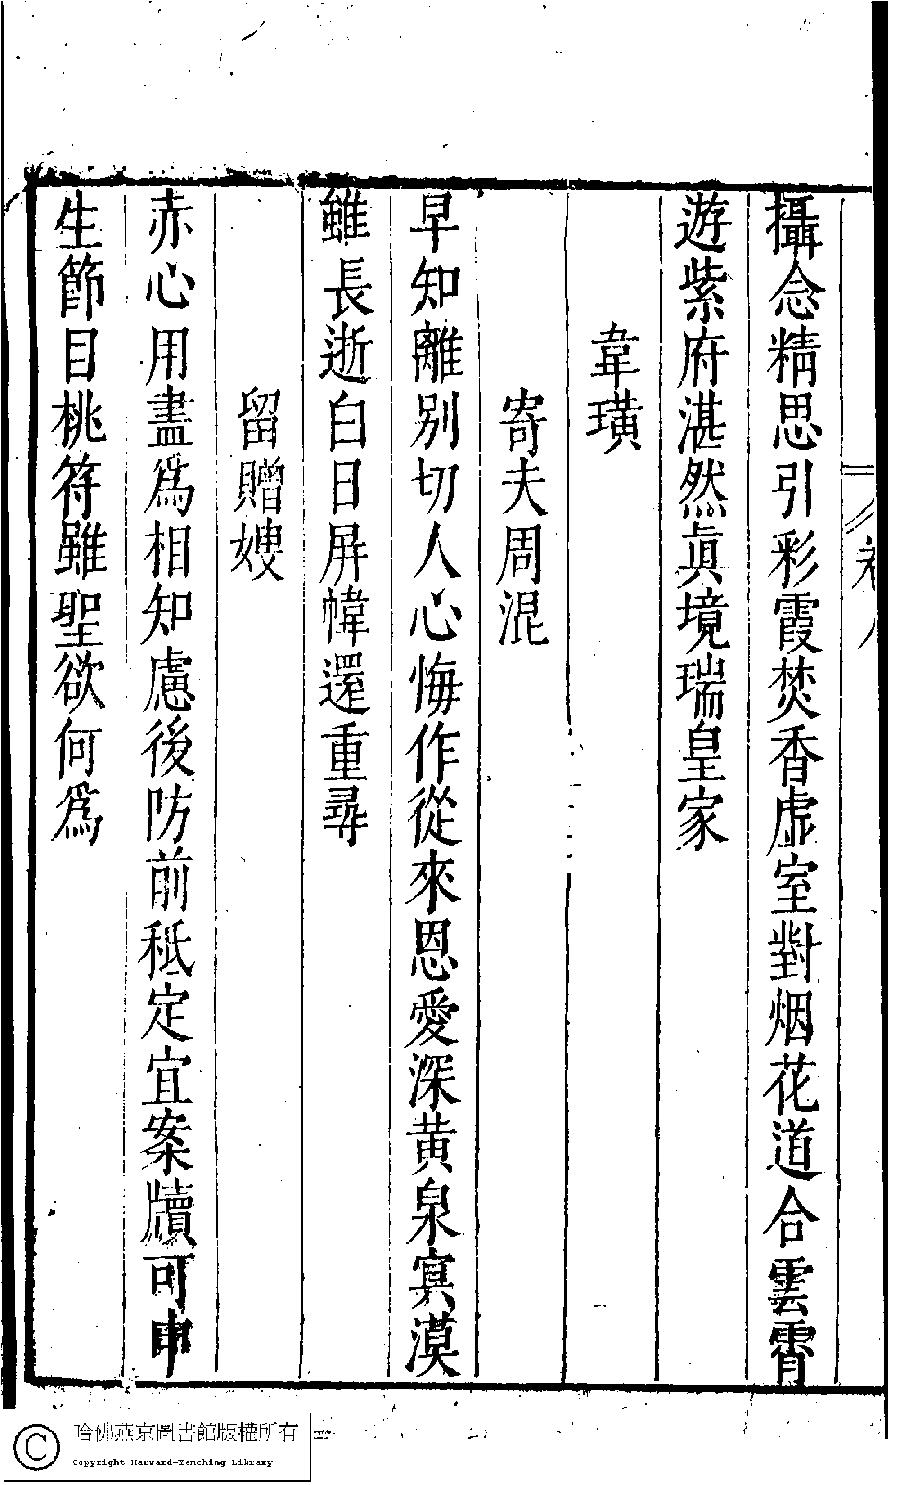 攝念精思引彩霞焚香虚室對烟花道合雲霄
遊紫府湛然眞境瑞皇家
韋璜
寄夫周混
早知離別切人心悔作從來恩愛深黄泉寞漠
雖長逝白日屏幃還重尋
留贈嫂
赤心用盡爲相知慮後防前秪定宜案牘可申
生節目桃符雖聖欲何爲
哈佛燕京圖書館版權所有
Copyright Harvard-Yenching Library